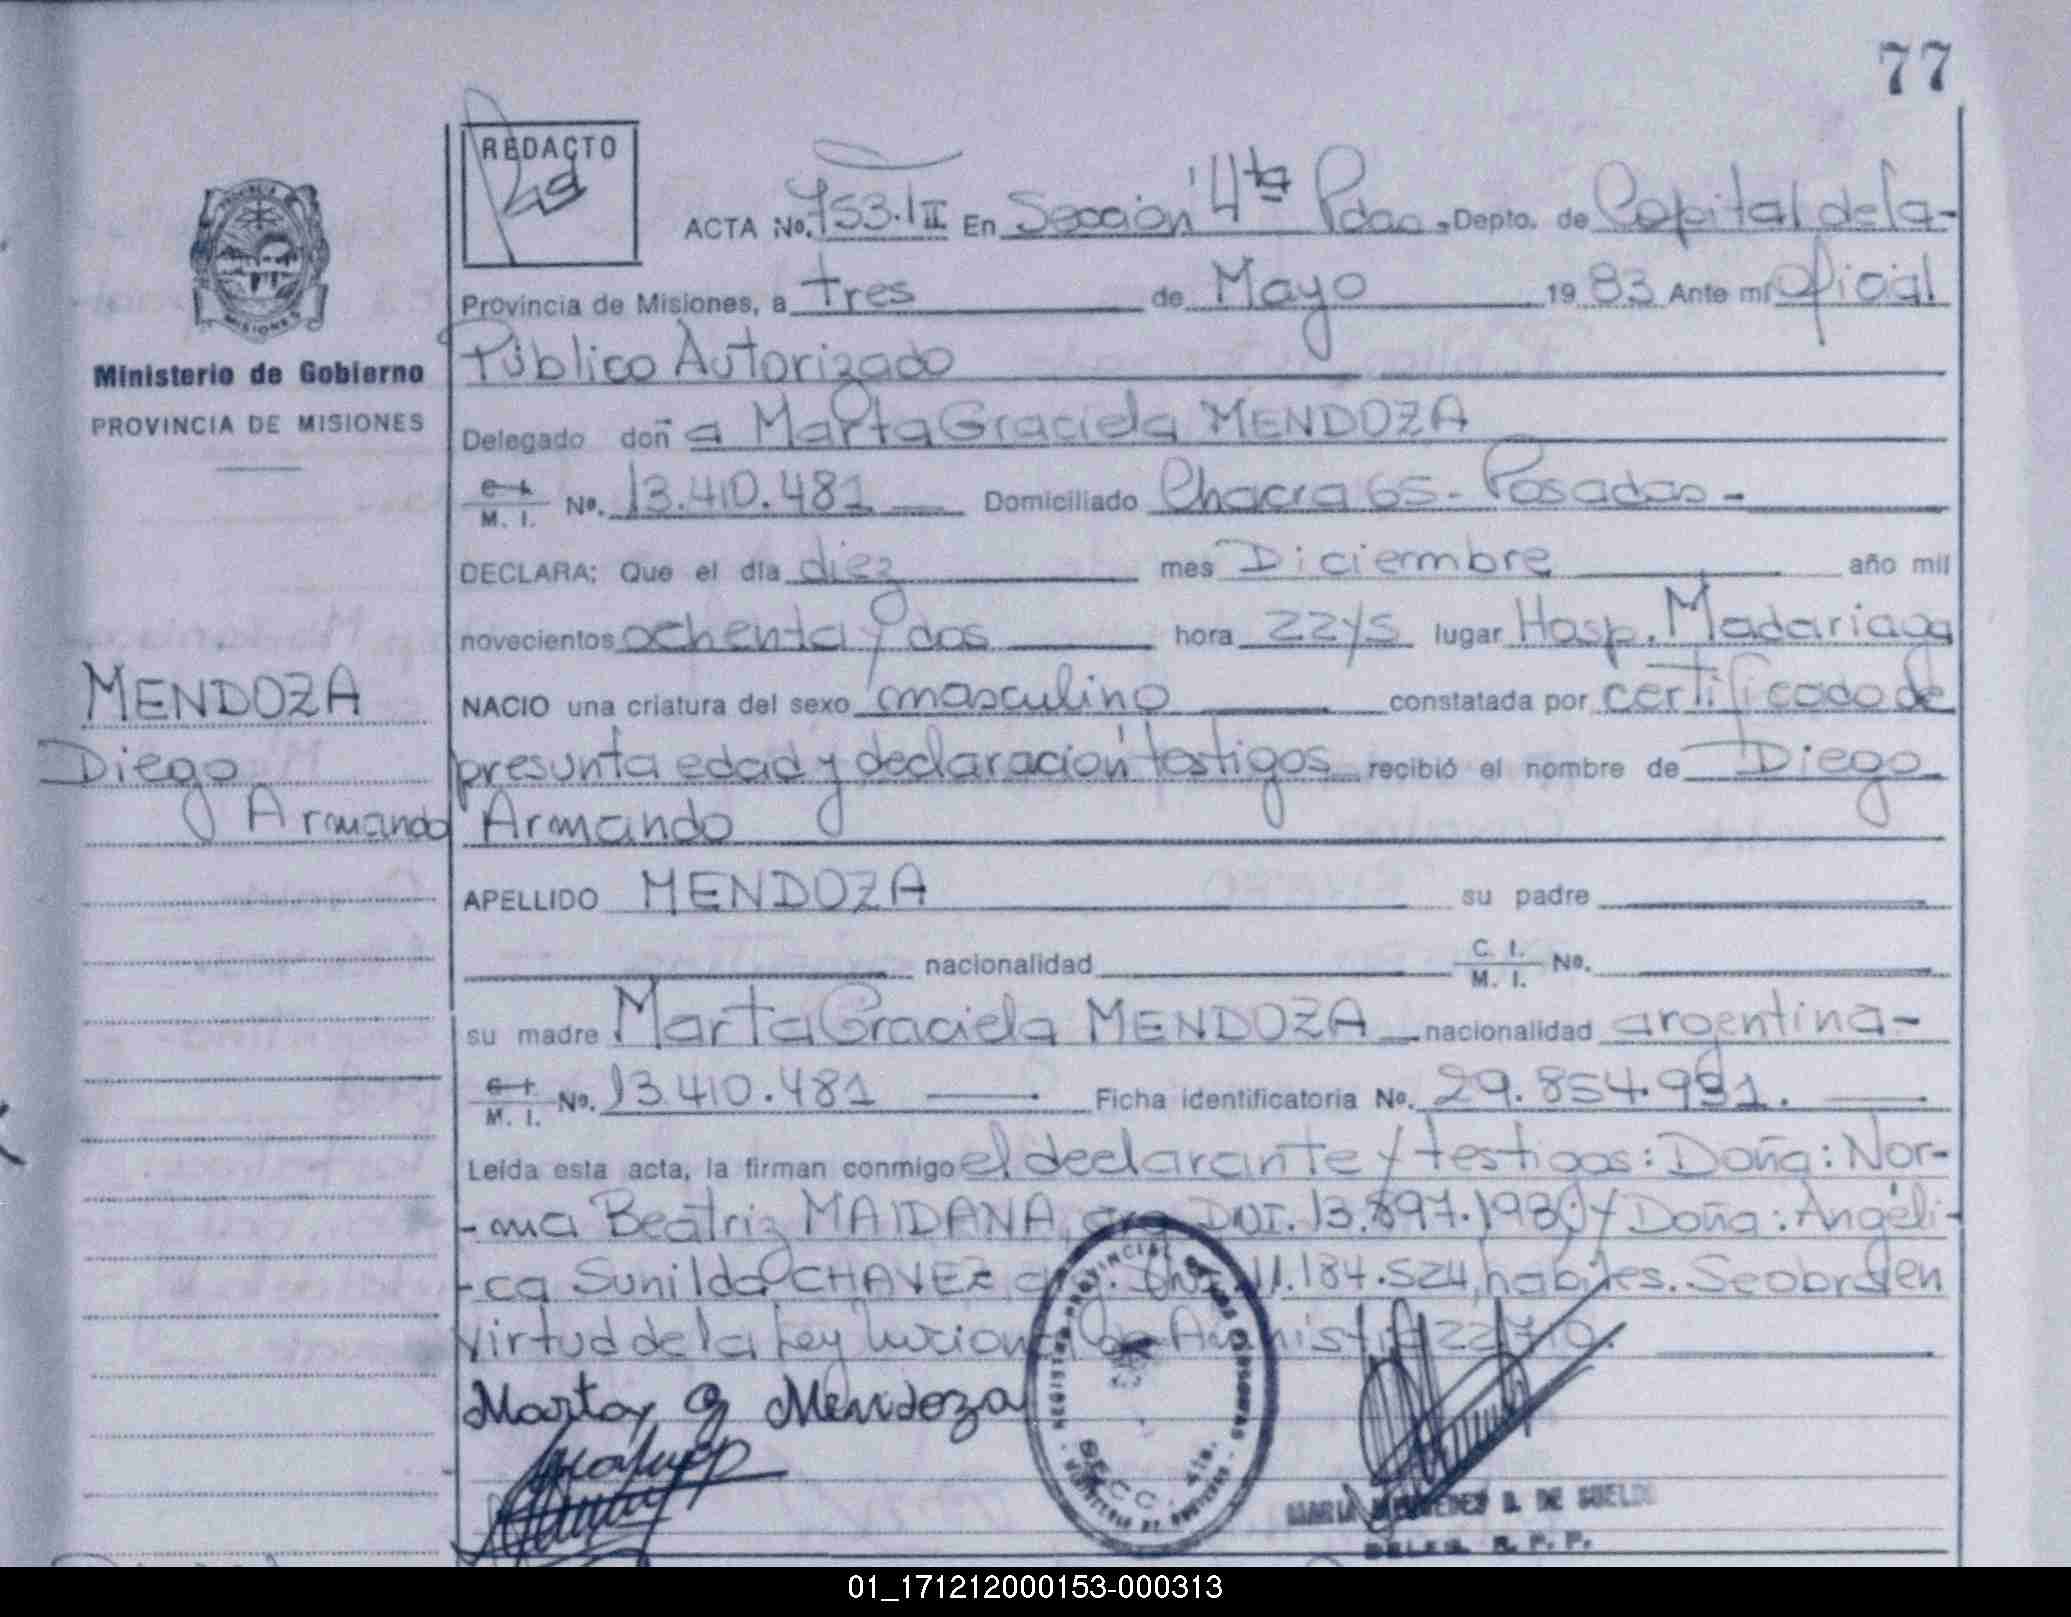 77
REDACTO
ACTA No. 753.III En Sección 4ta Pdas. Depto. de Capital de la-
Provincia de Misiones, a tres de Mayo 1983 Ante mi Oficial
Público Autorizado
Ministerio de Gobierno
PROVINCIA DE MISIONES
Delegado doña Marta Graciela MENDOZA
C. I. M. I. No. 13.410.481 Domiciliado Chacra 65 - Posadas -
DECLARA: Que el día diez mes Diciembre año mil
novecientos ochenta y dos hora 22 y 5 lugar Hosp. Madariaga
MENDOZA
NACIO una criatura del sexo masculino constatada por certificado de
Diego
presunta edad y declaración testigos recibió el nombre de Diego
Armando
Armando
APELLIDO MENDOZA su padre
nacionalidad C. I. M. I. No.
su madre Marta Graciela MENDOZA nacionalidad argentina-
C. I. M. I. No. 13.410.481 Ficha identificatoria No. 29.854.991.
Leída esta acta, la firman conmigo el declarante y testigos: Doña: Nor-
-ma Beatriz MAIDANA, arg. DNI. 13.897.198, y Doña: Angéli-
-ca Sunilda CHAVEZ, arg. DNI. 11.184.524, hábiles. Se obra en
virtud de la Ley Nacional de Amnistía 22710.
Marta G Mendoza
REGISTRO PROVINCIAL DE LAS PERSONAS
SECC. 4ta.
MINISTERIO DE GOBIERNO
MARIA MERCEDES D. DE SUELDO
DELEG. R. P. P.
01_171212000153-000313